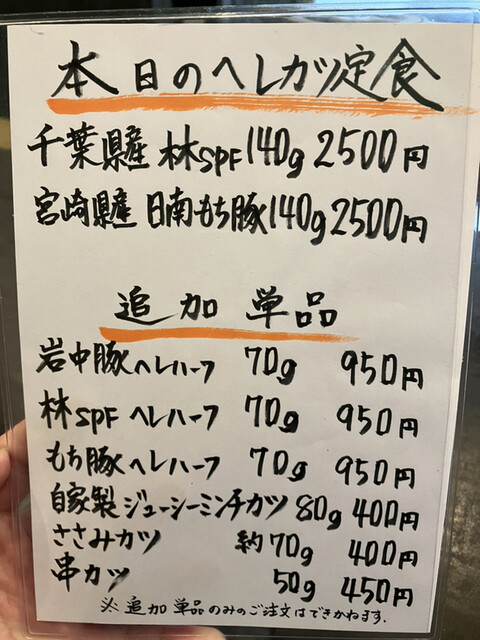 本日のヘレカツ定食
千葉県産 林SPF 140g 2500円
宮崎県産 日南もち豚 140g 2500円
追加単品
岩中豚ヘレハーフ 70g 950円
林SPF ヘレハーフ 70g 950円
もち豚ヘレハーフ 70g 950円
自家製ジューシーミンチカツ 80g 400円
ささみカツ 約70g 400円
串カツ 50g 450円
※追加単品のみのご注文はできかねます.